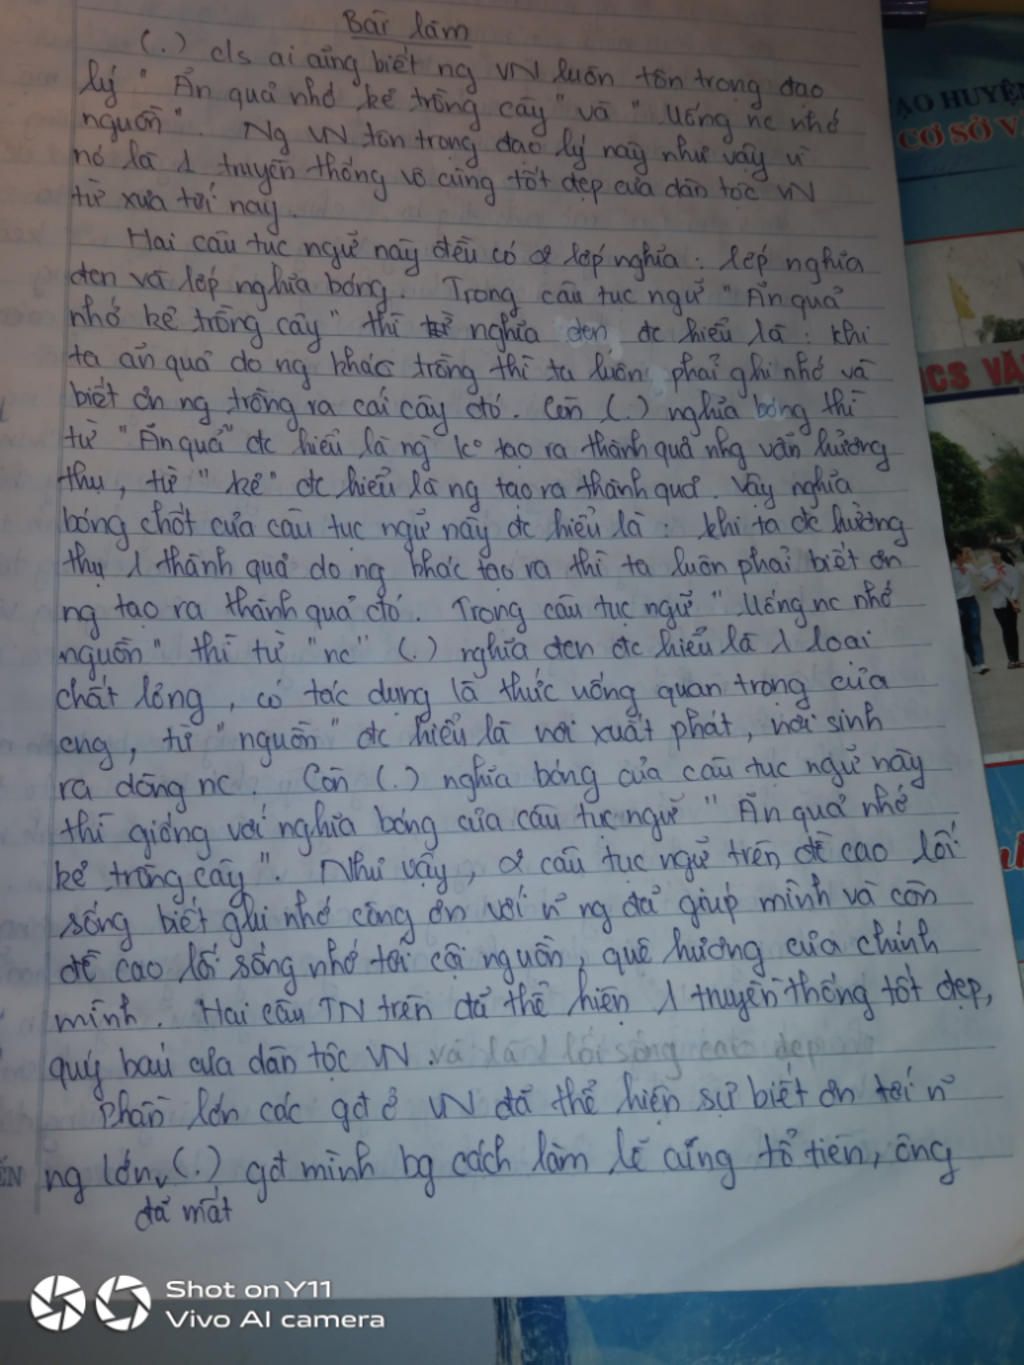 Bài làm
(.) c/s ai cũng biết ng VN luôn tôn trọng đạo
lý " Ăn quả nhớ kẻ trồng cây " và " Uống nc nhớ
nguồn ". Ng VN tôn trọng đạo lý này như vậy vì
nó là 1 truyền thống vô cùng tốt đẹp của dân tộc VN
từ xưa tới nay.
Hai câu tục ngữ này đều có 2 lớp nghĩa : lớp nghĩa
đen và lớp nghĩa bóng. Trong câu tục ngữ " Ăn quả
nhớ kẻ trồng cây " thì nghĩa đen đc hiểu là : khi
ta ăn quả do ng khác trồng thì ta luôn phải ghi nhớ và
biết ơn ng trồng ra cái cây đó. Còn (.) nghĩa bóng thì
từ " Ăn quả " đc hiểu là ng ko tạo ra thành quả nhg vẫn hưởng
thụ, từ " kẻ " đc hiểu là ng tạo ra thành quả. Vậy nghĩa
bóng chốt của câu tục ngữ này đc hiểu là : khi ta đc hưởng
thụ 1 thành quả do ng khác tạo ra thì ta luôn phải biết ơn
ng tạo ra thành quả đó. Trong câu tục ngữ " Uống nc nhớ
nguồn " thì từ " nc " (.) nghĩa đen đc hiểu là 1 loại
chất lỏng, có tác dụng là thức uống quan trọng của
cng, từ " nguồn " đc hiểu là nơi xuất phát, nơi sinh
ra dòng nc. Còn (.) nghĩa bóng của câu tục ngữ này
thì giống với nghĩa bóng của câu tục ngữ " Ăn quả nhớ
kẻ trồng cây ". Như vậy, 2 câu tục ngữ trên đề cao lối
sống biết ghi nhớ công ơn với n~ ng đã giúp mình và còn
đề cao lối sống nhớ tới cội nguồn, quê hương của chính
mình. Hai câu TN trên đã thể hiện 1 truyền thống tốt đẹp,
quý báu của dân tộc VN và là 1 lối sống cao đẹp
Phần lớn các gđ ở VN đã thể hiện sự biết ơn tới n~
ng lớn (.) gđ mình bg cách làm lễ cúng tổ tiên, ông
đã mất
ẠO HUYỆN
CƠ SỞ V
CS VĂ
Shot on Y11
Vivo AI camera